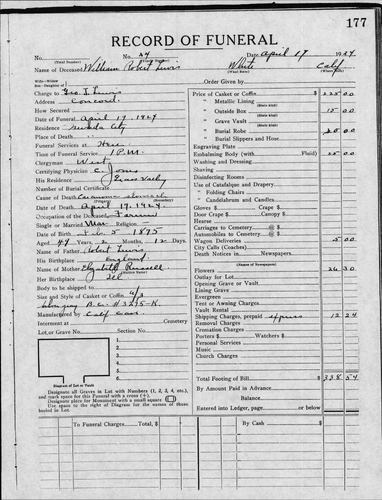 177
RECORD OF FUNERAL
No. No. 24 Date April 17 1924
(Total Number) (Yearly Number)
Name of Deceased William Robert Lewis White Calif
(What Race) (Where Born)
Wife—Widow
Son—Daughter of
Charge to Geo. T. Lewis
Address Concord
How Secured
Date of Funeral April 19 1924
Residence Nevada City
Place of Death
Funeral Services at Here
Time of Funeral Service 1 P.M.
Clergyman West
Certifying Physician C. Jones
His Residence Grass Valley
Number of Burial Certificate
Cause of Death Carcinoma stomach
(Primary) (Secondary)
Date of Death April 17, 1924.
Occupation of the Deceased Farmer
Single or Married Mar Religion
Date of Birth Feb 5 1875
Aged 49 Years, 2 Months, 12 Days
Name of Father Robert Lewis
His Birthplace England
Name of Mother Elizabeth Russell
Her Birthplace Ill
Body to be shipped to
Size and Style of Casket or Coffin 6/3
Manufactured by Calif Cas.
Interment at Cemetery
Lot or Grave No. Section No.
Diagram of Lot or Vault
Designate all Graves in Lot with Numbers (1, 2, 3, 4, etc.),
and mark place for this Funeral with a cross (+).
Designate place for Monument with a small square
Use space to the right of Diagram for the names of those
buried in Lot.
Order Given by
Price of Casket or Coffin $ 225 00
(State Kind)
" Metallic Lining
(State Kind)
" Outside Box 15 00
(State Kind)
" Grave Vault
(State Kind)
" Burial Robe 20 00
(State Kind)
" Burial Slippers and Hose
Engraving Plate
Embalming Body (with Fluid) 25 00
Washing and Dressing
Shaving
Disinfecting Rooms
Use of Catafalque and Drapery
" Folding Chairs
" Candelabrum and Candles
Gloves $ Crape $
Door Crape $ Canopy $
Hearse
Carriages to Cemetery @
Automobiles to Cemetery @
Wagon Deliveries 5 00
City Calls (Coaches)
Death Notices in Newspapers
(Names of Newspapers)
Flowers 36 30
Outlay for Lot
Opening Grave or Vault
Lining Grave
Evergreen
Tent or Awning Charges
Vault Rental
Shipping Charges, prepaid express 12 24
Removal Charges
Cremation Charges
Porters $ Watchers $
Personal Services
Music
Church Charges
Total Footing of Bill $ 338 54
By Amount Paid in Advance
Balance
Entered into Ledger, page or below
To Funeral Charges, Total $ By Cash $